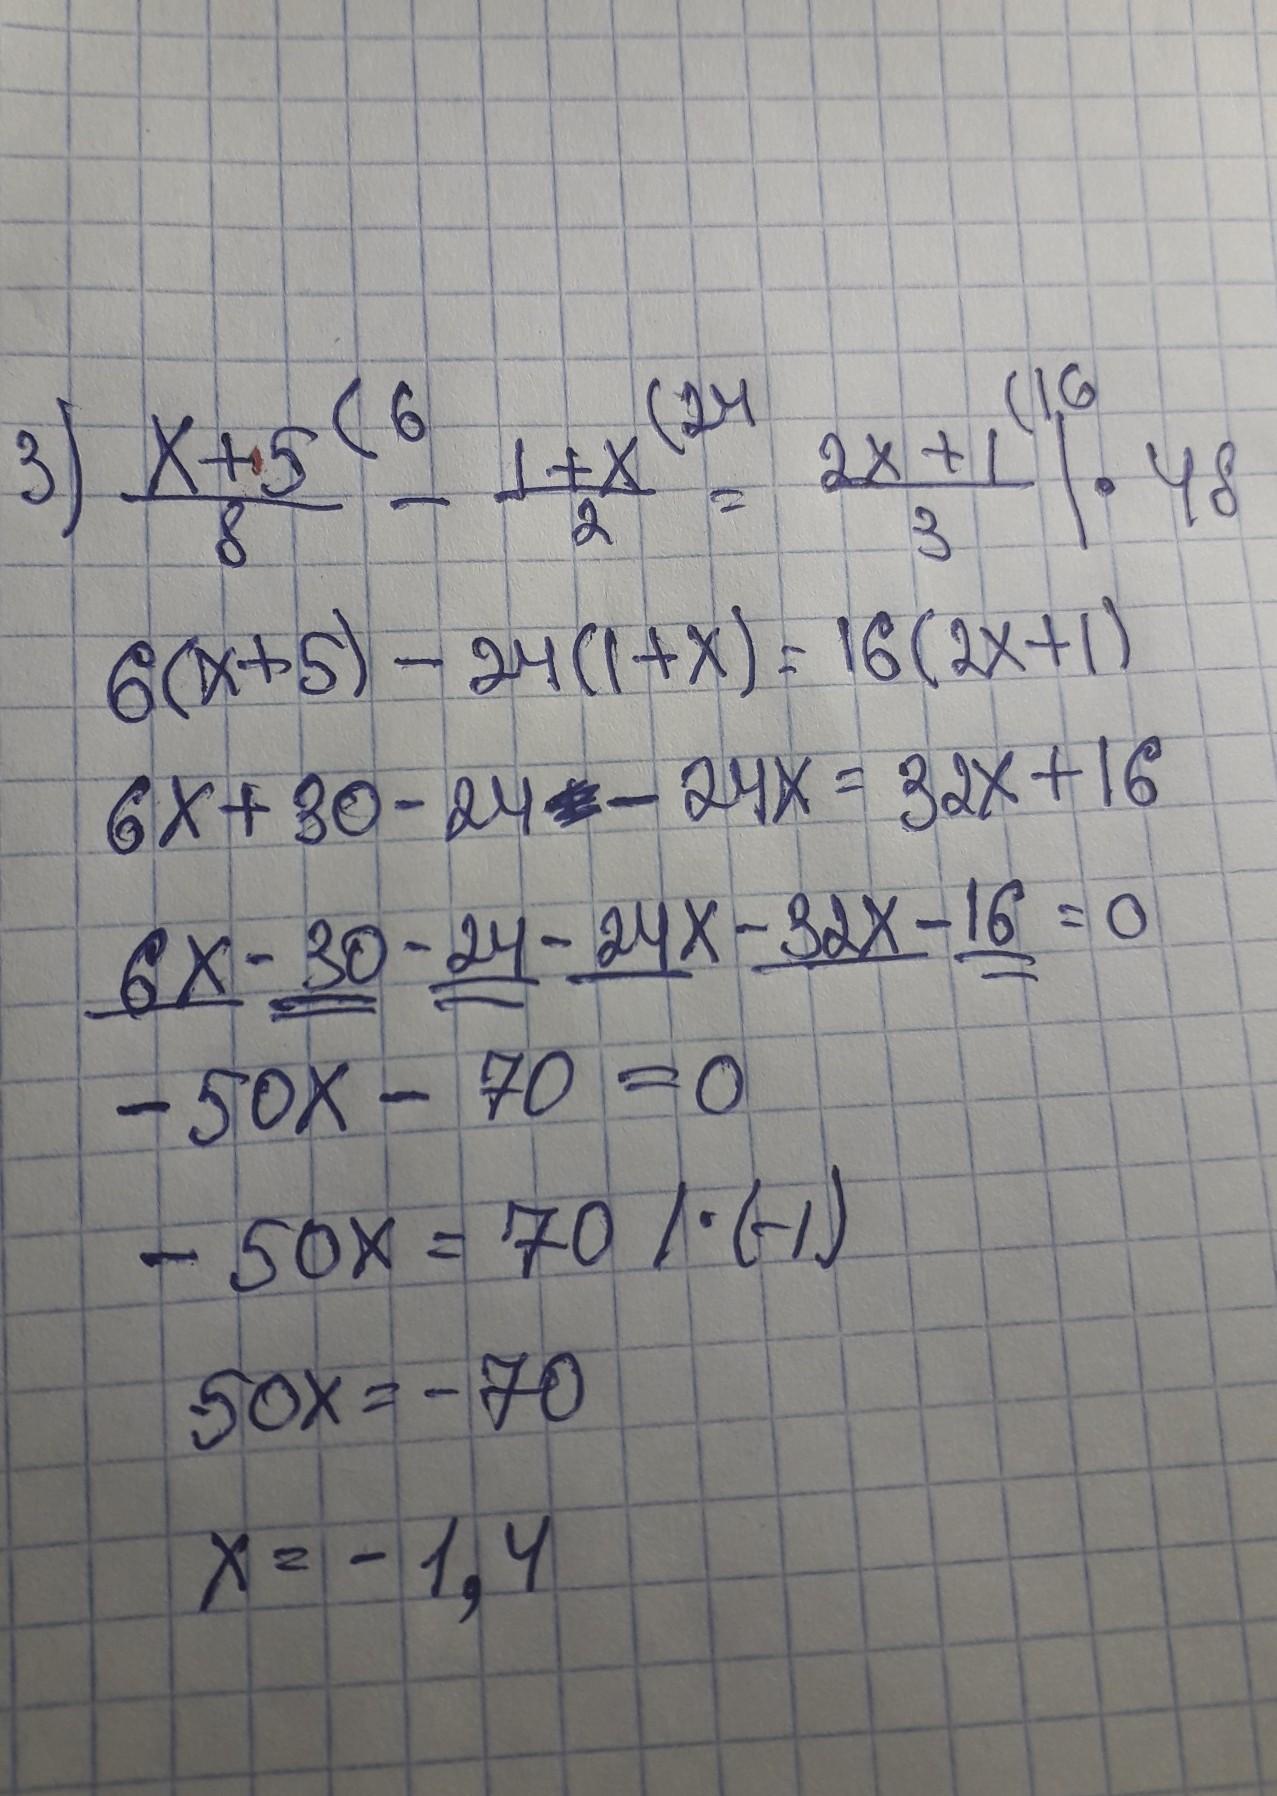 3) (x+5)/8 (6 - (1+x)/2 (24 = (2x+1)/3 (16 | · 48
6(x+5) - 24(1+x) = 16(2x+1)
6x + 30 - 24 - 24x = 32x + 16
6x - 30 - 24 - 24x - 32x - 16 = 0
- 50x - 70 = 0
- 50x = 70 / · (-1)
50x = - 70
x = - 1,4